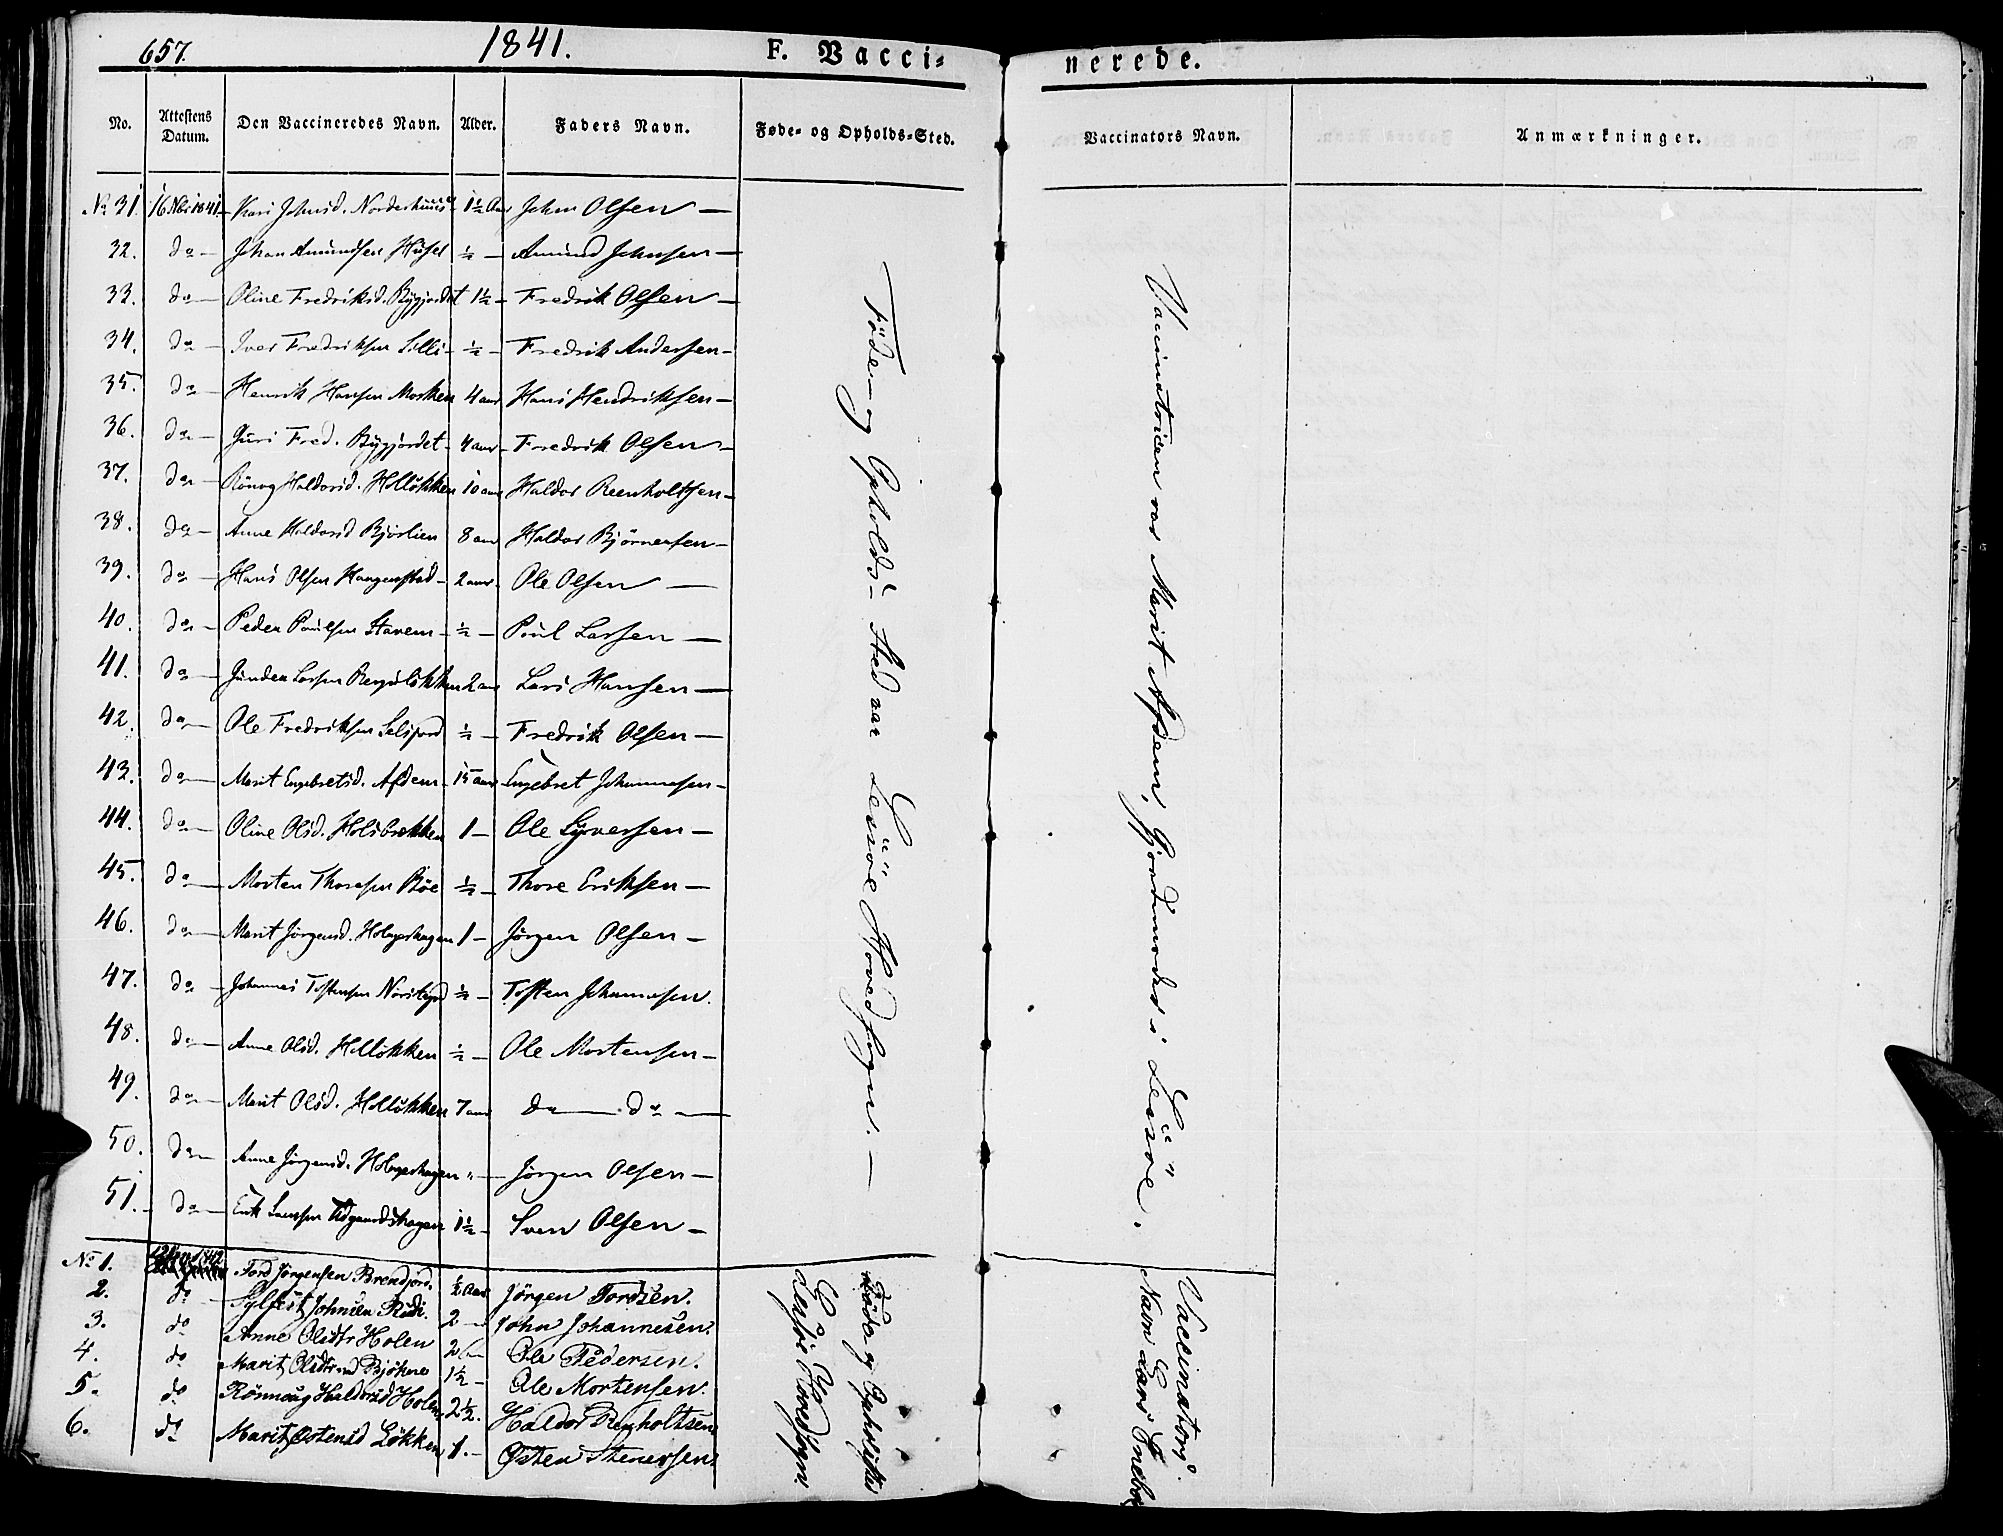 657.
1841.
F. Vacci=
nerede.
No. Attestens Datum. Den Vaccineredes Navn. Alder. Faders Navn. Føde- og Opholds-Sted. Vaccinators Navn. Anmærkninger.
No 31. 16 Nbr 1841 Kari Johnsd. 1½ Aar John Olsen —
32. do — Johan Amundsen ½ — Amund Johnsen —
33. do — Oline Fredriksd. Bÿgjordet 1½ — Fredrik Olsen —
34. do — Iver Fredriksen Lilli ½ — Fredrik Andersen —
35. do — Henrik Hansen Morken 4 aar Hans Hendriksen —
36. do — Guri Fred. Bÿgjordet 4 aar Fredrik Olsen —
37. do — Rönog Haldorsd. Holløkken 10 aar Haldor Reenholtsen —
38. do — Anne Haldorsd Bjorlien 8 aar Haldor Björnersen —
39. do — Hans Olsen Haugenstad 2 aar Ole Olsen —
40. do — Peder Poulsen Stavem ½ — Poul Larsen —
41. do — Larsen 2 aar Lars Hansen —
42. do — Ole Fredriksen Selsjord ½ — Fredrik Olsen —
43. do — Marit Engebretsd. Afdem 15 aar Engebret Johannesen —
44. do — Oline Olsd. Holsbrekken 1 — Ole Syversen —
45. do — Morten Thoresen Böe ½ — Thore Eriksen —
46. do — Marit Jörgensd. Holagerhagen 1 — Jörgen Olsen —
47. do — Johannes Tostensen ½ — Tosten Johannesen.
48. do — Anne Olsd. Holløkken ½ — Ole Mortensen —
49. do — Marit Olsd. Holløkken 7 aar do — do —
50. do — Anne Jörgensd. Holagerhagen " — Jörgen Olsen —
51. do — 1½ — Sven Olsen —
Føde- og Opholds-Sted var Lessöe Hovedsogn. —
Vaccinatricen var Marit Afdem, Gjordmoder i Lessöe.
No 1. Tord Jørgensen Brendjord. ½ Aar Jörgen Tordsen.
2. do Sylfest Johnsen Rudi. 2 — John Johannesen.
3. do Anne Olsdtr Holen 2 — Ole Pedersen.
4. do Marit Olsdtr Bjøkne 1½ — Ole Mortensen.
5. do Rönnoug Haldorsd Holen 2½. Haldor Renholtsen
6. do Marit Østensd Løkken 1. — Østen Stenersen.
Föde og Opholdssted
Lessöe Hovedsogn.
Vaccinators
Navn Lars Enebo